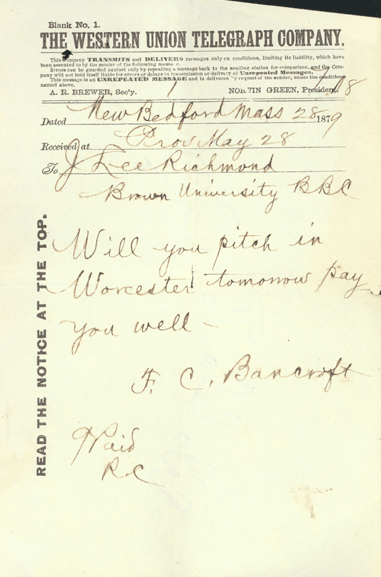 Blank No. 1.
THE WESTERN UNION TELEGRAPH COMPANY.
This Company TRANSMITS and DELIVERS messages only on conditions, limiting its liability, which have
been assented to by the sender of the following message.
Errors can be guarded against only by repeating a message back to the sending station for comparison, and the Com-
pany will not hold itself liable for errors or delays in transmission or delivery of Unrepeated Messages.
This message is an UNREPEATED MESSAGE and is delivered by request of the sender, under the conditions
named above.
A. R. BREWER, Sec'y. NORVIN GREEN, President.
Dated New Bedford Mass 28 1879
Received at Prov May 28
To J Lee Richmond
Brown University BBC
Will you pitch in
Worcester tomorrow pay
you well -
F. C. Bancroft
Paid
READ THE NOTICE AT THE TOP.